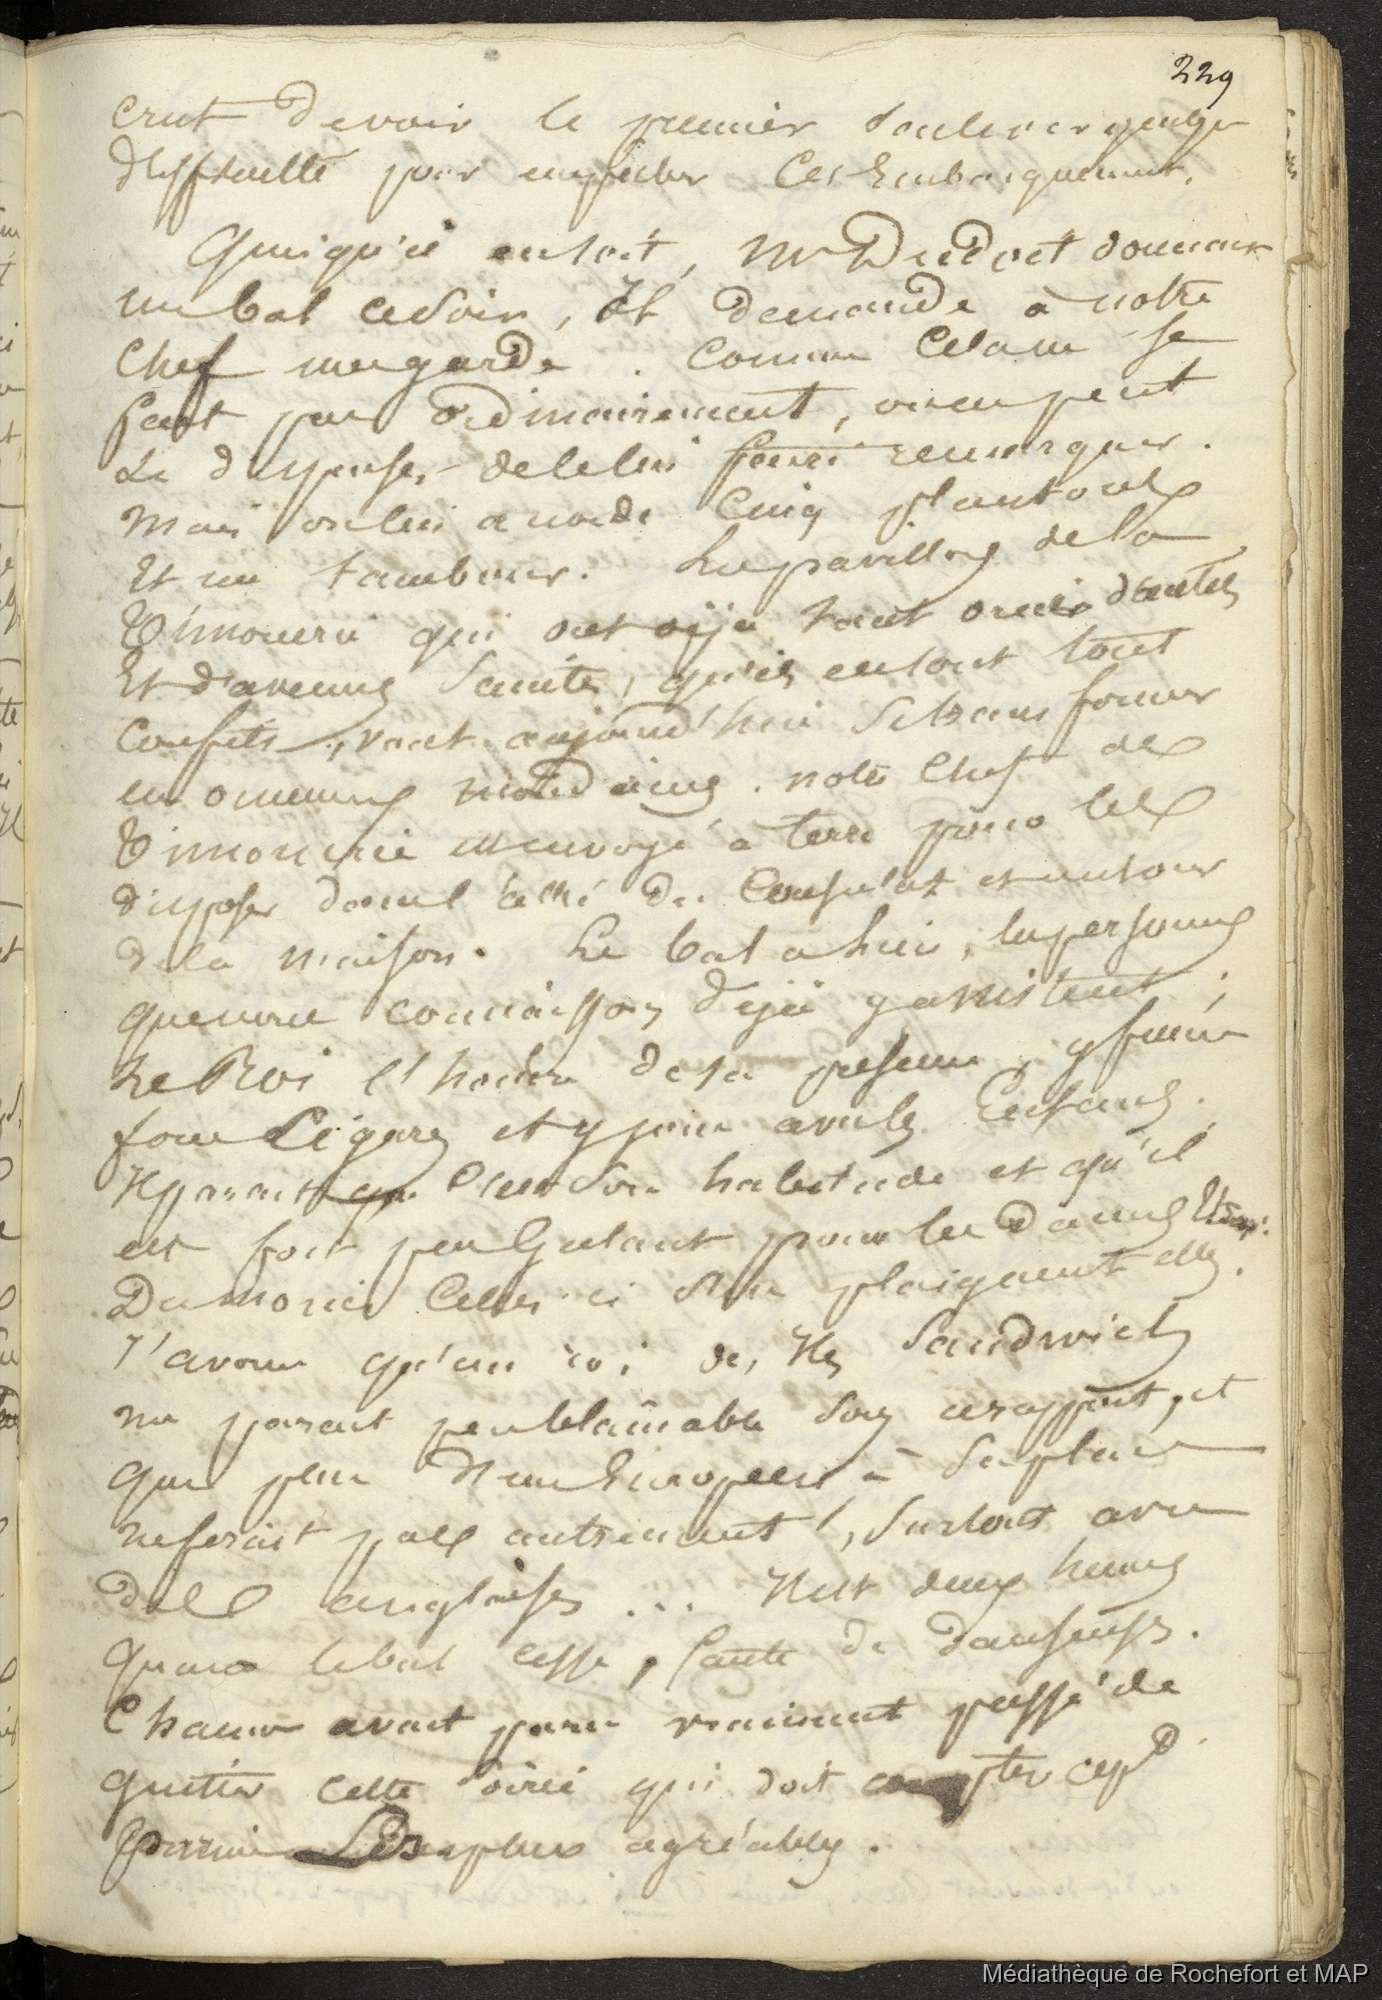 229
crut devoir le premier soulever quelque
difficulté pour empêcher cet Embarquement.
Quoiqu'il en soit, Mr Dudoit donnant
un bal ce soir, Il demande à notre
Chef une garde. Comme cela ne se
fait pas ordinairement, on ne peut
se dispenser de le lui faire remarquer.
Mais on lui accorde Cinq plantons
Et un tambour. Les pavillons de la
Timonerie qui ont déjà tant ornés d'autels
Et d'avenues Saintes, qu'ils en sont tout
Confits, vont aujourd'hui se transformer
en ornemens mondains. notre Chef de
Timonerie est envoyé à terre pour les
disposer dans l'allée du Consulat et autour
de la maison. Le bal a lieu, les personnes
que nous connaissons déjà y assistent;
Le Roi l'honore de sa présence, y fume
son Cigare et y joue avec les Enfans.
Il parait que c'est son habitude et qu'il
est fort peu galant pour les Dames
Du moins Celles-ci s'en plaignent elles.
J'avoue qu'un roi des Iles Sandwich
me parait peu blâmable sous ce rapport, et
que plus d'un Européen à sa place
ne ferait pas autrement, surtout avec
des anglaises ... Il est deux heures
quand le bal cesse, faute de danseuses.
Chacun avait paru vraiment passé de
quitter cette soirée qui doit compter cepd
parmi Les plus agréables.
Médiathèque de Rochefort et MAP